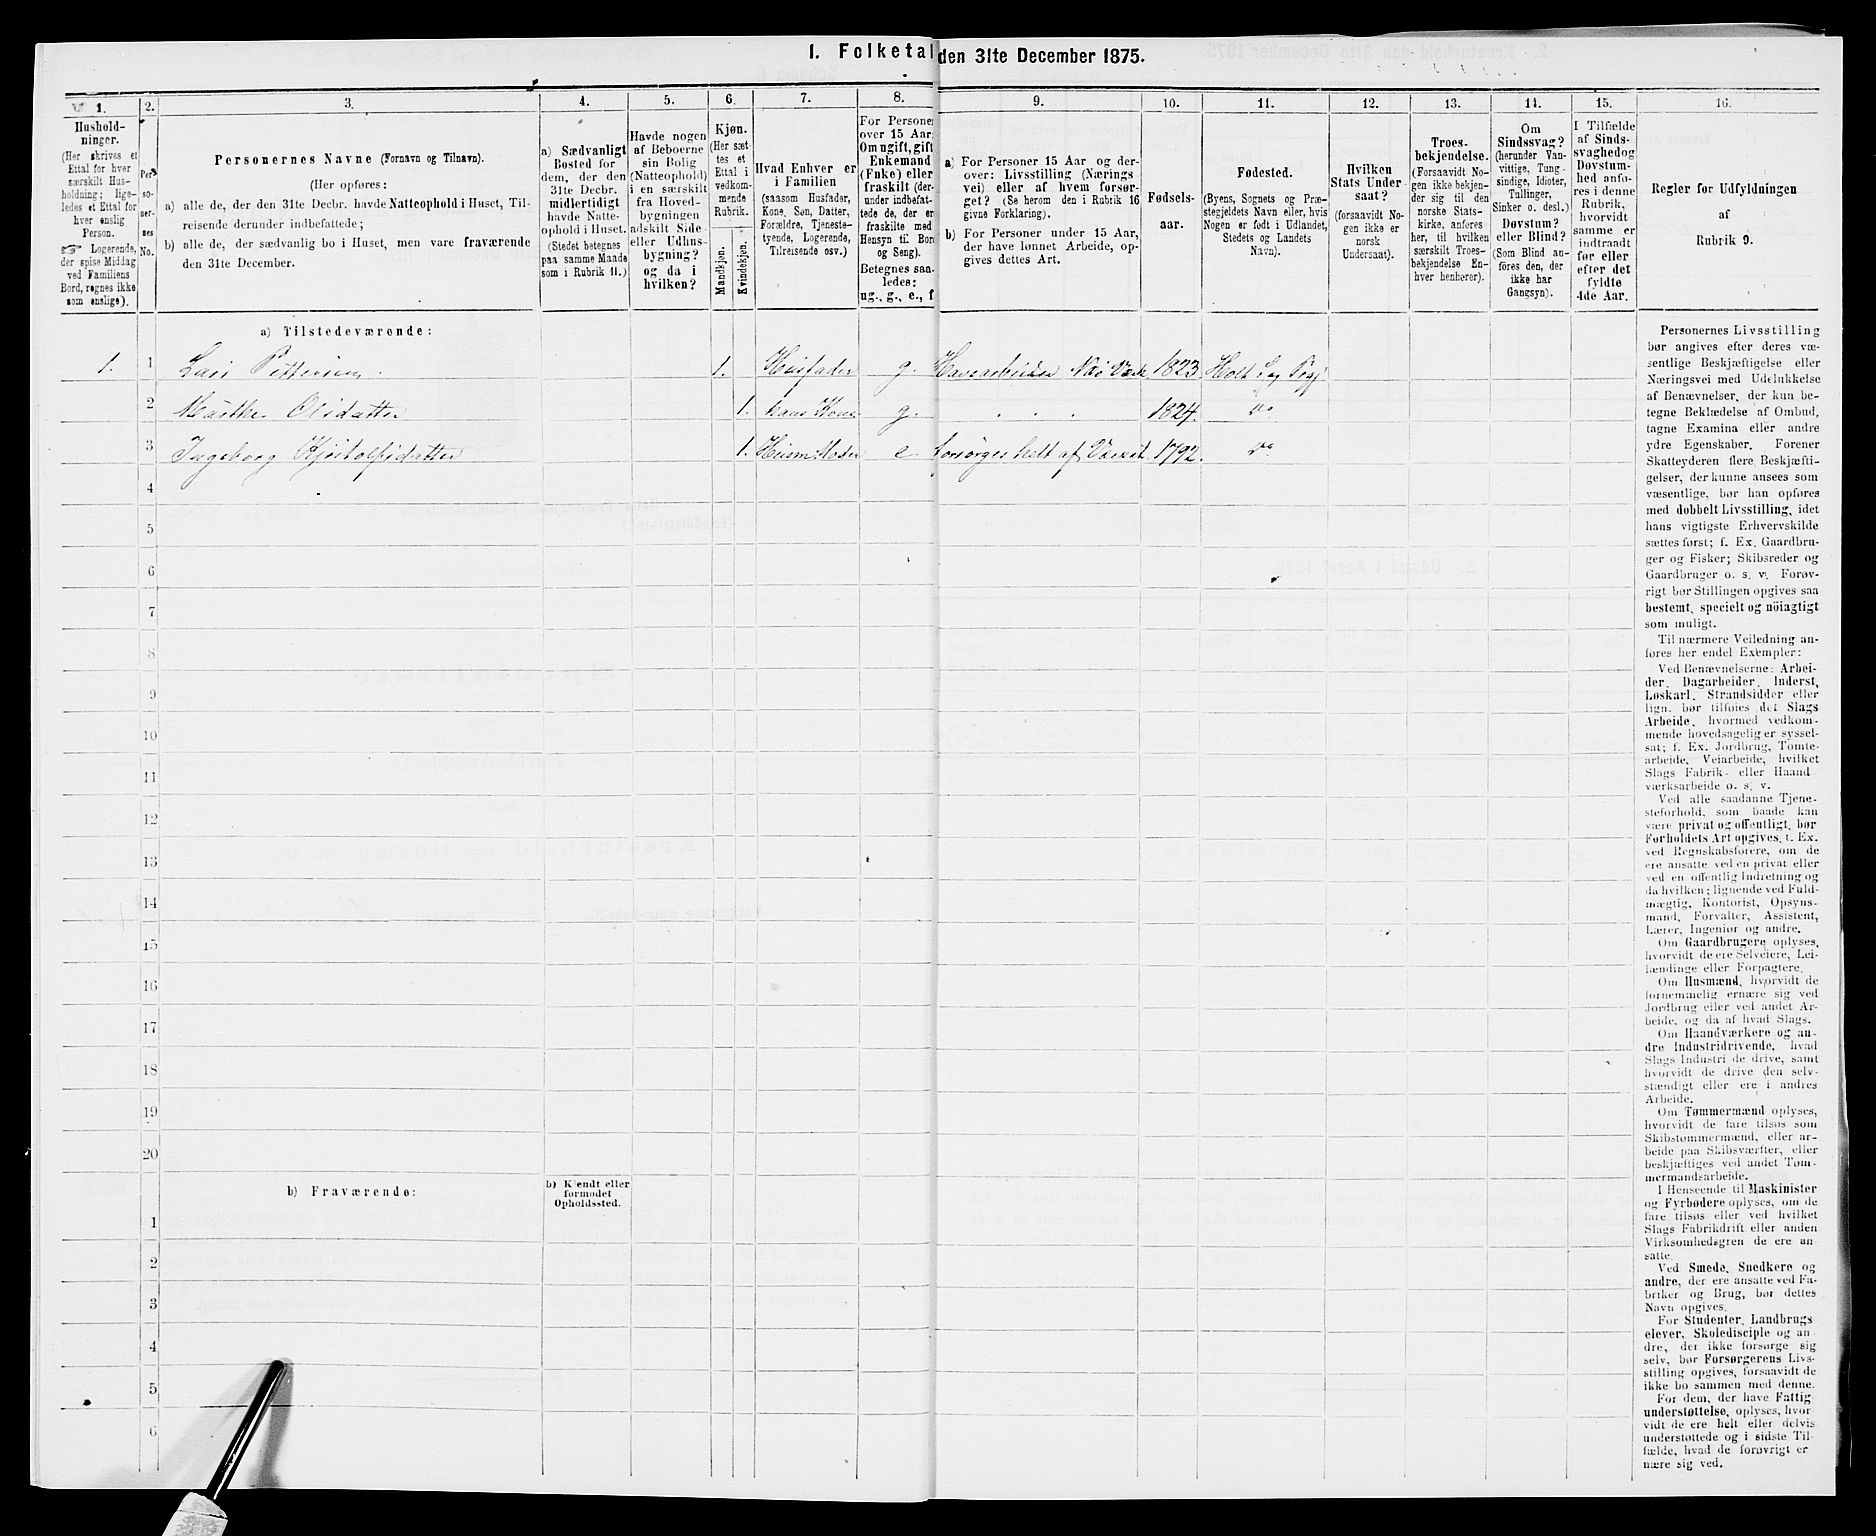 1. Folketal den 31te December 1875.
1.
Hushold-
ninger.
(Her skrives et
Ettal for hver
særskilt Hus-
holdning; lige-
ledes et Ettal for
hver enslig
Person.
☞ Logerende,
der spise Middag
ved Familiens
Bord, regnes ikke
som enslige).
2.
Per-
so-
ner-
nes
No.
3.
Personernes Navne (Fornavn og Tilnavn).
(Her opføres:
a) alle de, der den 31te Decbr. havde Natteophold i Huset, Til-
reisende derunder indbefattede;
b) alle de, der sædvanlig bo i Huset, men vare fraværende
den 31te December.
4.
a) Sædvanligt
Bosted for
dem, der den
31te Decbr.
midlertidigt
havde Natte-
ophold i Huset.
(Stedet betegnes
paa samme Maade
som i Rubrik 11.)
5.
Havde nogen
af Beboerne
sin Bolig
(Natteophold)
i en særskilt
fra Hoved-
bygningen
adskilt Side-
eller Udhus-
bygning?
og da i
hvilken?
6.
Kjøn.
(Her sæt-
tes et
Ettal i
vedkom-
mende
Rubrik.
Mandkjøn.
Kvindekjøn.
7.
Hvad Enhver er
i Familien
(saasom Husfader,
Kone, Søn, Datter,
Forældre, Tjeneste-
tyende, Logerende,
Tilreisende osv.)
8.
For Persone
over 15 Aar:
Om ugift, gift
Enkemand
(Enke) eller
fraskilt (der-
under indbefat-
tede de, der er
fraskilte med
Hensyn til Bord
og Seng).
Betegnes saa-
ledes:
ug., g., e., f
9.
a) For Personer 15 Aar og der-
over: Livsstilling (Nærings-
vei) eller af hvem forsør-
get? (Se herom den i Rubrik 16
givne Forklaring).
b) For Personer under 15 Aar,
der have lønnet Arbeide, op-
gives dettes Art.
10.
Fødsels-
aar.
11.
Fødested.
(Byens, Sognets og Præ-
stegjeldets Navn eller, hvis
Nogen er født i Udlandet,
Stedets og Landets
Navn).
12.
Hvilken
Stats Under-
saat?
(forsaavidt No-
gen ikke er
norsk
Undersaat).
13.
Troes-
bekjendelse.
(Forsaavidt No-
gen ikke bekjen-
der sig til den
norske Stats-
kirke, anføres
her, til hvilken
særskilt Troes-
bekjendelse En-
hver henhører).
14.
Om
Sindssvag?
(herunder Van-
vittige, Tung-
sindige, Idioter,
Tullinger,
Sinker o. desl.)
Døvstum?
eller Blind?
(Som Blind an-
føres den, der
ikke har
Gangsyn).
15.
I Tilfælde
af Sinds-
svaghed og
Døvstum-
hed anfø-
res i denne
Rubrik,
hvorvidt
samme er
indtraadt
før eller
efter det
fyldte
4de Aar.
16.
Regler for Udfyldningen
af
Rubrik 9.
a) Tilstedeværende:
1. 1 Lars Pettersen. 1. Husfader g. Havearbeider Næs Værk 1823. Holt S og Prgj
2 Marthe Olsdatter 1. hans Kone g. . . . 1824. do
3 Ingeborg Kjøstolfsdatter 1. Husm: Moder e. forsørges helt af Værket 1792. do
4
5
6
7
8
9
10
11
12
13
14
15
16
17
18
19
20
b) Fraværende:
b) Kjendt eller
formodet
Opholdssted.
1
2
3
4
5
6
Personernes Livsstilling
bør angives efter deres væ-
sentlige Beskjæftigelse eller
Næringsvei med Udelukkelse
af Benævnelser, der kun be-
tegne Beklædelse af Ombud,
tagne Examina eller andre
ydre Egenskaber. Forener
Skatteyderen flere Beskjæfti-
gelser, der kunne ansees som
væsentlige, bør han opføres
med dobbelt Livsstilling, idet
hans vigtigste Erhvervskilde
sættes først; f. Ex. Gaardbru-
ger og Fisker; Skibsreder og
Gaardbruger o. s. v. Forøv-
rigt bør Stillingen opgives saa
bestemt, specielt og nöiagtigt
som muligt.
Til nærmere Veiledning an-
føres her endel Exempler:
Ved Benævnelserne: Arbei-
der, Dagarbeider, Inderst,
Løskarl, Strandsidder eller
lign. bør tilføies det Slags
Arbeide, hvormed vedkom-
mende hovedsagelig er syssel-
sat; f. Ex. Jordbrug, Tomte-
arbeide, Veiarbeide, hvilket
Slags Fabrik- eller Haand-
værksarbeide o. s. v.
Ved alle saadanne Tjene-
steforhold, som baade kan
være privat og offentligt, bør
Forholdets Art opgives, t. Ex.
ved Regnskabsførere, om de
ere ansatte ved en privat eller
ved en offentlig Indretning og
da hvilken; lignende ved Fuld-
mægtig, Kontorist, Opsyns-
mand, Forvalter, Assistent,
Lærer, Ingeniør og andre.
Om Gaardbrugere oplyses,
hvorvidt de ere Selveiere, Lei-
lændinge eller Forpagtere.
Om Husmænd, hvorvidt de
fornemmelig ernære sig ved
Jordbrug eller ved andet Ar-
beide, og da af hvad Slags.
Om Haandværkere og an-
dre Industridrivende, hvad
Slags Industri de drive, samt
hvorvidt de drive den selv-
stændigt eller ere i andres
Arbeide.
Om Tømmermænd oplyses,
hvorvidt de fare tilsøs som
Skibstømmermænd, eller ar-
beide paa Skibsværfter, eller
beskjæftiges ved andet Tøm-
mermandsarbeide.
I Henseende til Maskinister
og Fyrbødere oplyses, om de
fare tilsøs eller ved hvilket
Slags Fabrikdrift eller anden
Virksomhedsgren de ere an-
satte.
Ved Smede, Snedkere og
andre, der ere ansatte ved Fa-
briker og Brug, bør dettes
Navn opgives.
For Studenter, Landbrugs-
elever, Skoledisciple og an-
dre, der ikke forsørge sig
selv, bør Forsørgerens Livs-
stilling opgives, forsaavidt de
ikke bo sammen med denne.
For dem, der have Fattig-
understøttelse, oplyses, hvor-
vidt de ere helt eller delvis
understøttede og i sidste Til-
fælde, hvad de forøvrigt er-
nære sig ved.